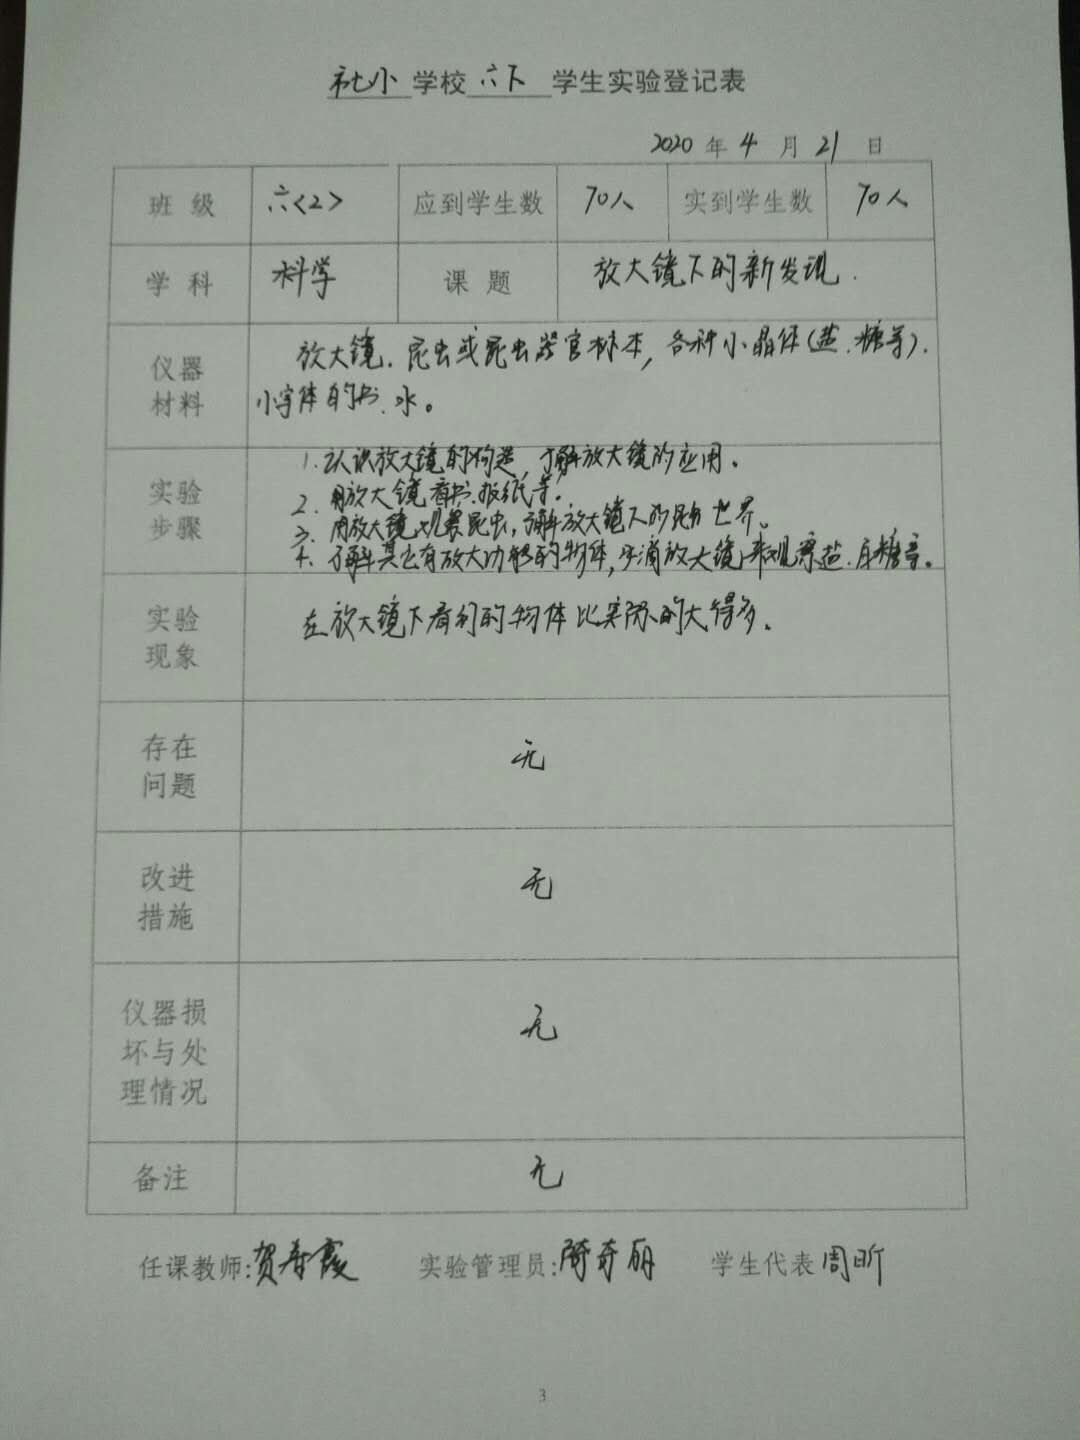 社小学校六下学生实验登记表
2020年4月21日
班级 六<2> 应到学生数 70人 实到学生数 70人
学科 科学 课题 放大镜下的新发现.
仪器材料
放大镜.昆虫或昆虫器官标本,各种小晶体(盐.糖等).
小字体的书.水。
实验步骤
1.认识放大镜的构造,了解放大镜的应用。
2.用放大镜看书.报纸等.
3.用放大镜观察昆虫,了解放大镜下的昆虫世界。
4.了解其它有放大功能的物体,水滴放大镜来观察盐.白糖等。
实验现象
在放大镜下看到的物体比实际的大得多.
存在问题
无
改进措施
无
仪器损坏与处理情况
无
备注 无
任课教师:贺春霞 实验管理员:奇丽 学生代表周昕
3